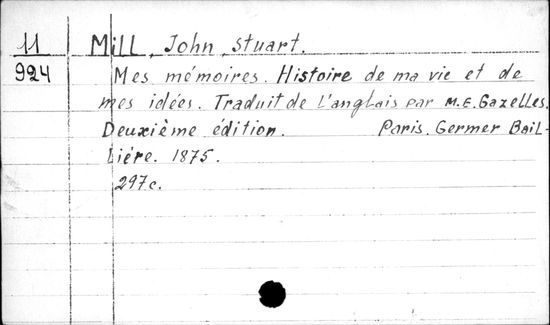 11 Mill, John, Stuart.
924 Mes mémoires. Histoire de ma vie et de
mes idées. Traduit de l'anglais par M.E.Gazelles.
Deuxième édition. Paris. Germer Bail-
liére. 1875.
297c.